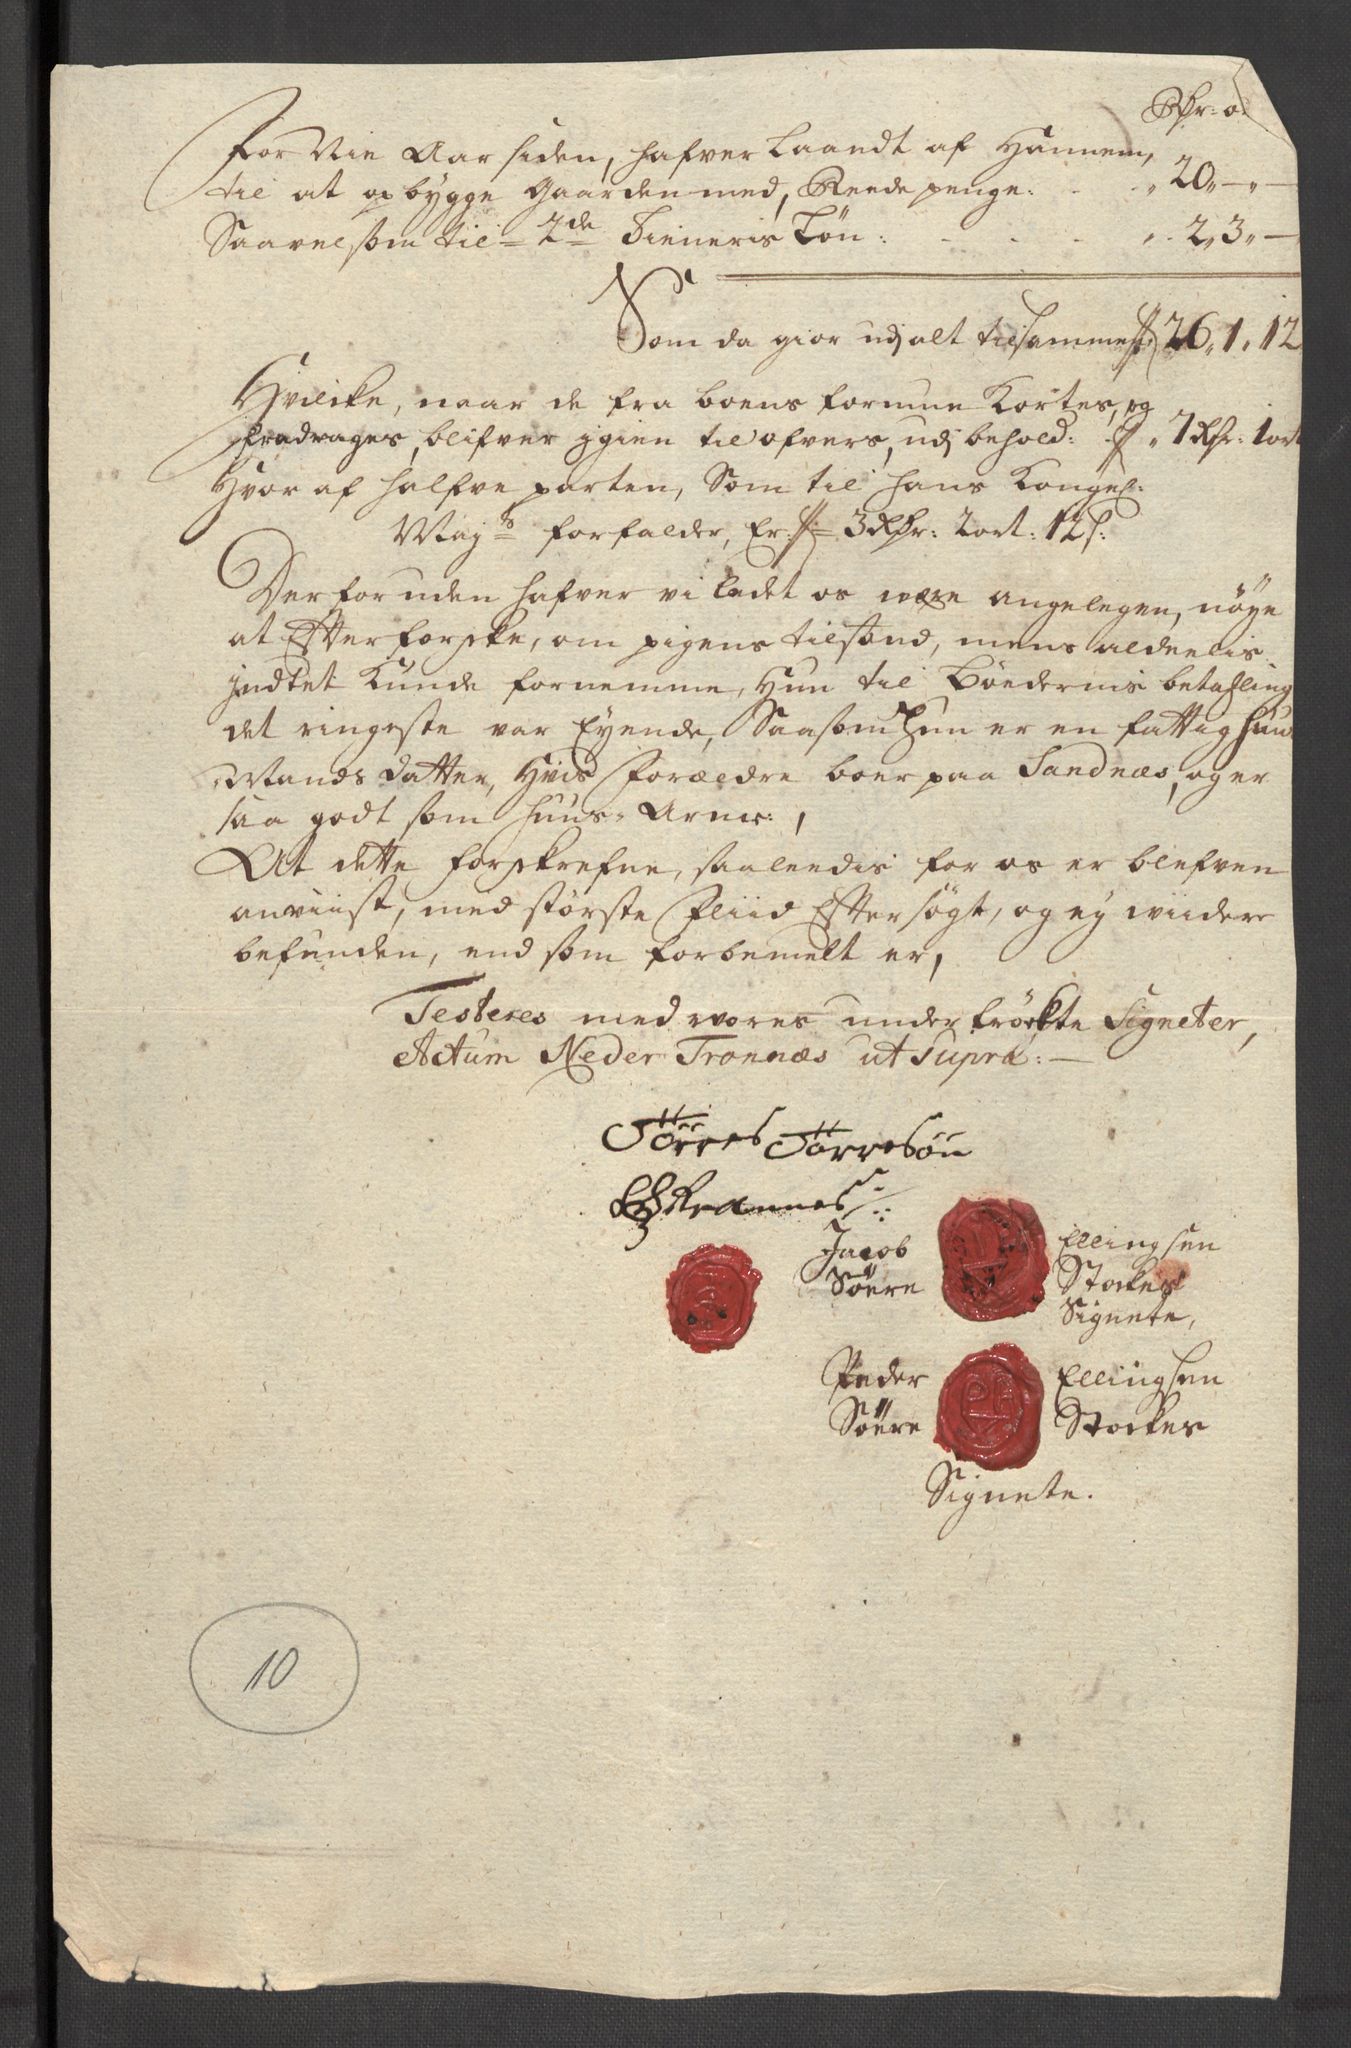 Rdr: o
For Nie Aar siden, hafver Laandt af Hannem,
til at opbygge Gaarden med, Reede penge: „ 20„ — „ —
Saavelsom til 2de Tieneris Løn: „ 2„ 3„ —
Som da giør udj alt tilsammen 26„ 1„ 12
Hvilcke, naar de fra boens formue Kortes, og
fradrages, blifver jgien til ofvers, udj behold: „ 7 Rdr: 1 ort
Hvor af halfve parten, Som til hans Kongel:
Mayts forfalder, Er 3 Rdr: 2 ort: 12 s:
Der foruden hafver vi ladet os være angelegen, nöye
at Efterforske, om pigens tilstand, mens aldeelis
jndtet Kunde fornemme, Hun til Böedernis betahling
det ringeste var Eyende, Saasom Hun er en fattig Huus
Mands datter, Hvis Forældre boer paa Sandnæs, og er
saa godt som Huus-Arme:,
At dette forskrefne, saaleedis for os er blefven
anviist, med störste Fliid Eftersögt, og ey viidere
befunden, end som forbemelt er,
Testeres med vores undertröckte Signeter,
Actum Neder Tronnæs ut supra: —
Törres Törresön
Jacob Ellingsen
Söere Stockes
Signete,
Peder Ellingsen
Söere Stockes
Signete.
10